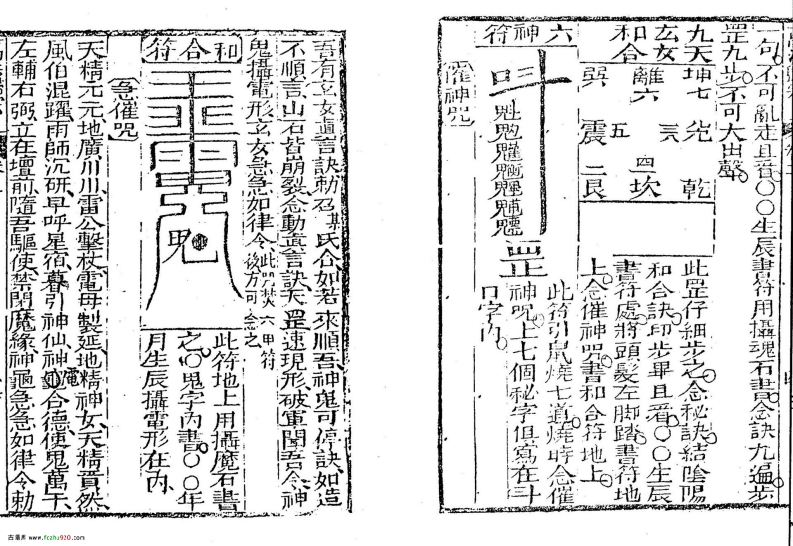 句不可亂走且音〇〇生辰書符用攝魂石書念訣九遍步
罡九步不可大出聲
九天 坤七 兌 乾
玄女 離六 五 四坎
和合 巽 震 二艮
此罡仔細步之念秘訣結陰陽
和合訣印步畢且看〇〇生辰
書符處將頭髮左脚踏書符地
上念催神咒書和合符地上
六神符
此符引鼠燒七道燒時念催
神咒上七個秘字但寫在斗
口字內
催神咒
吾有玄女真言訣勅召某氏合如若來順吾神鬼可停訣如造
不順言山石皆崩裂念動真言訣天罡速現形破軍聞吾令神
鬼攝電形玄女急急如律令此咒焚六甲符後方可念之
和合符
鬼
此符地上用攝魔石書
之〇鬼字內書〇〇年
月生辰攝電形在內
急催咒
天精元元地廣川川雷公擊杖電母製延地精神女天精晋然
風伯混躍雨師沉研早呼星宿暮引神仙神電合德使鬼萬千
左輔右弼立在壇前隨吾驅使禁閉魔緣神龜急急如律令勅
古籍网 www.fczhu920.com